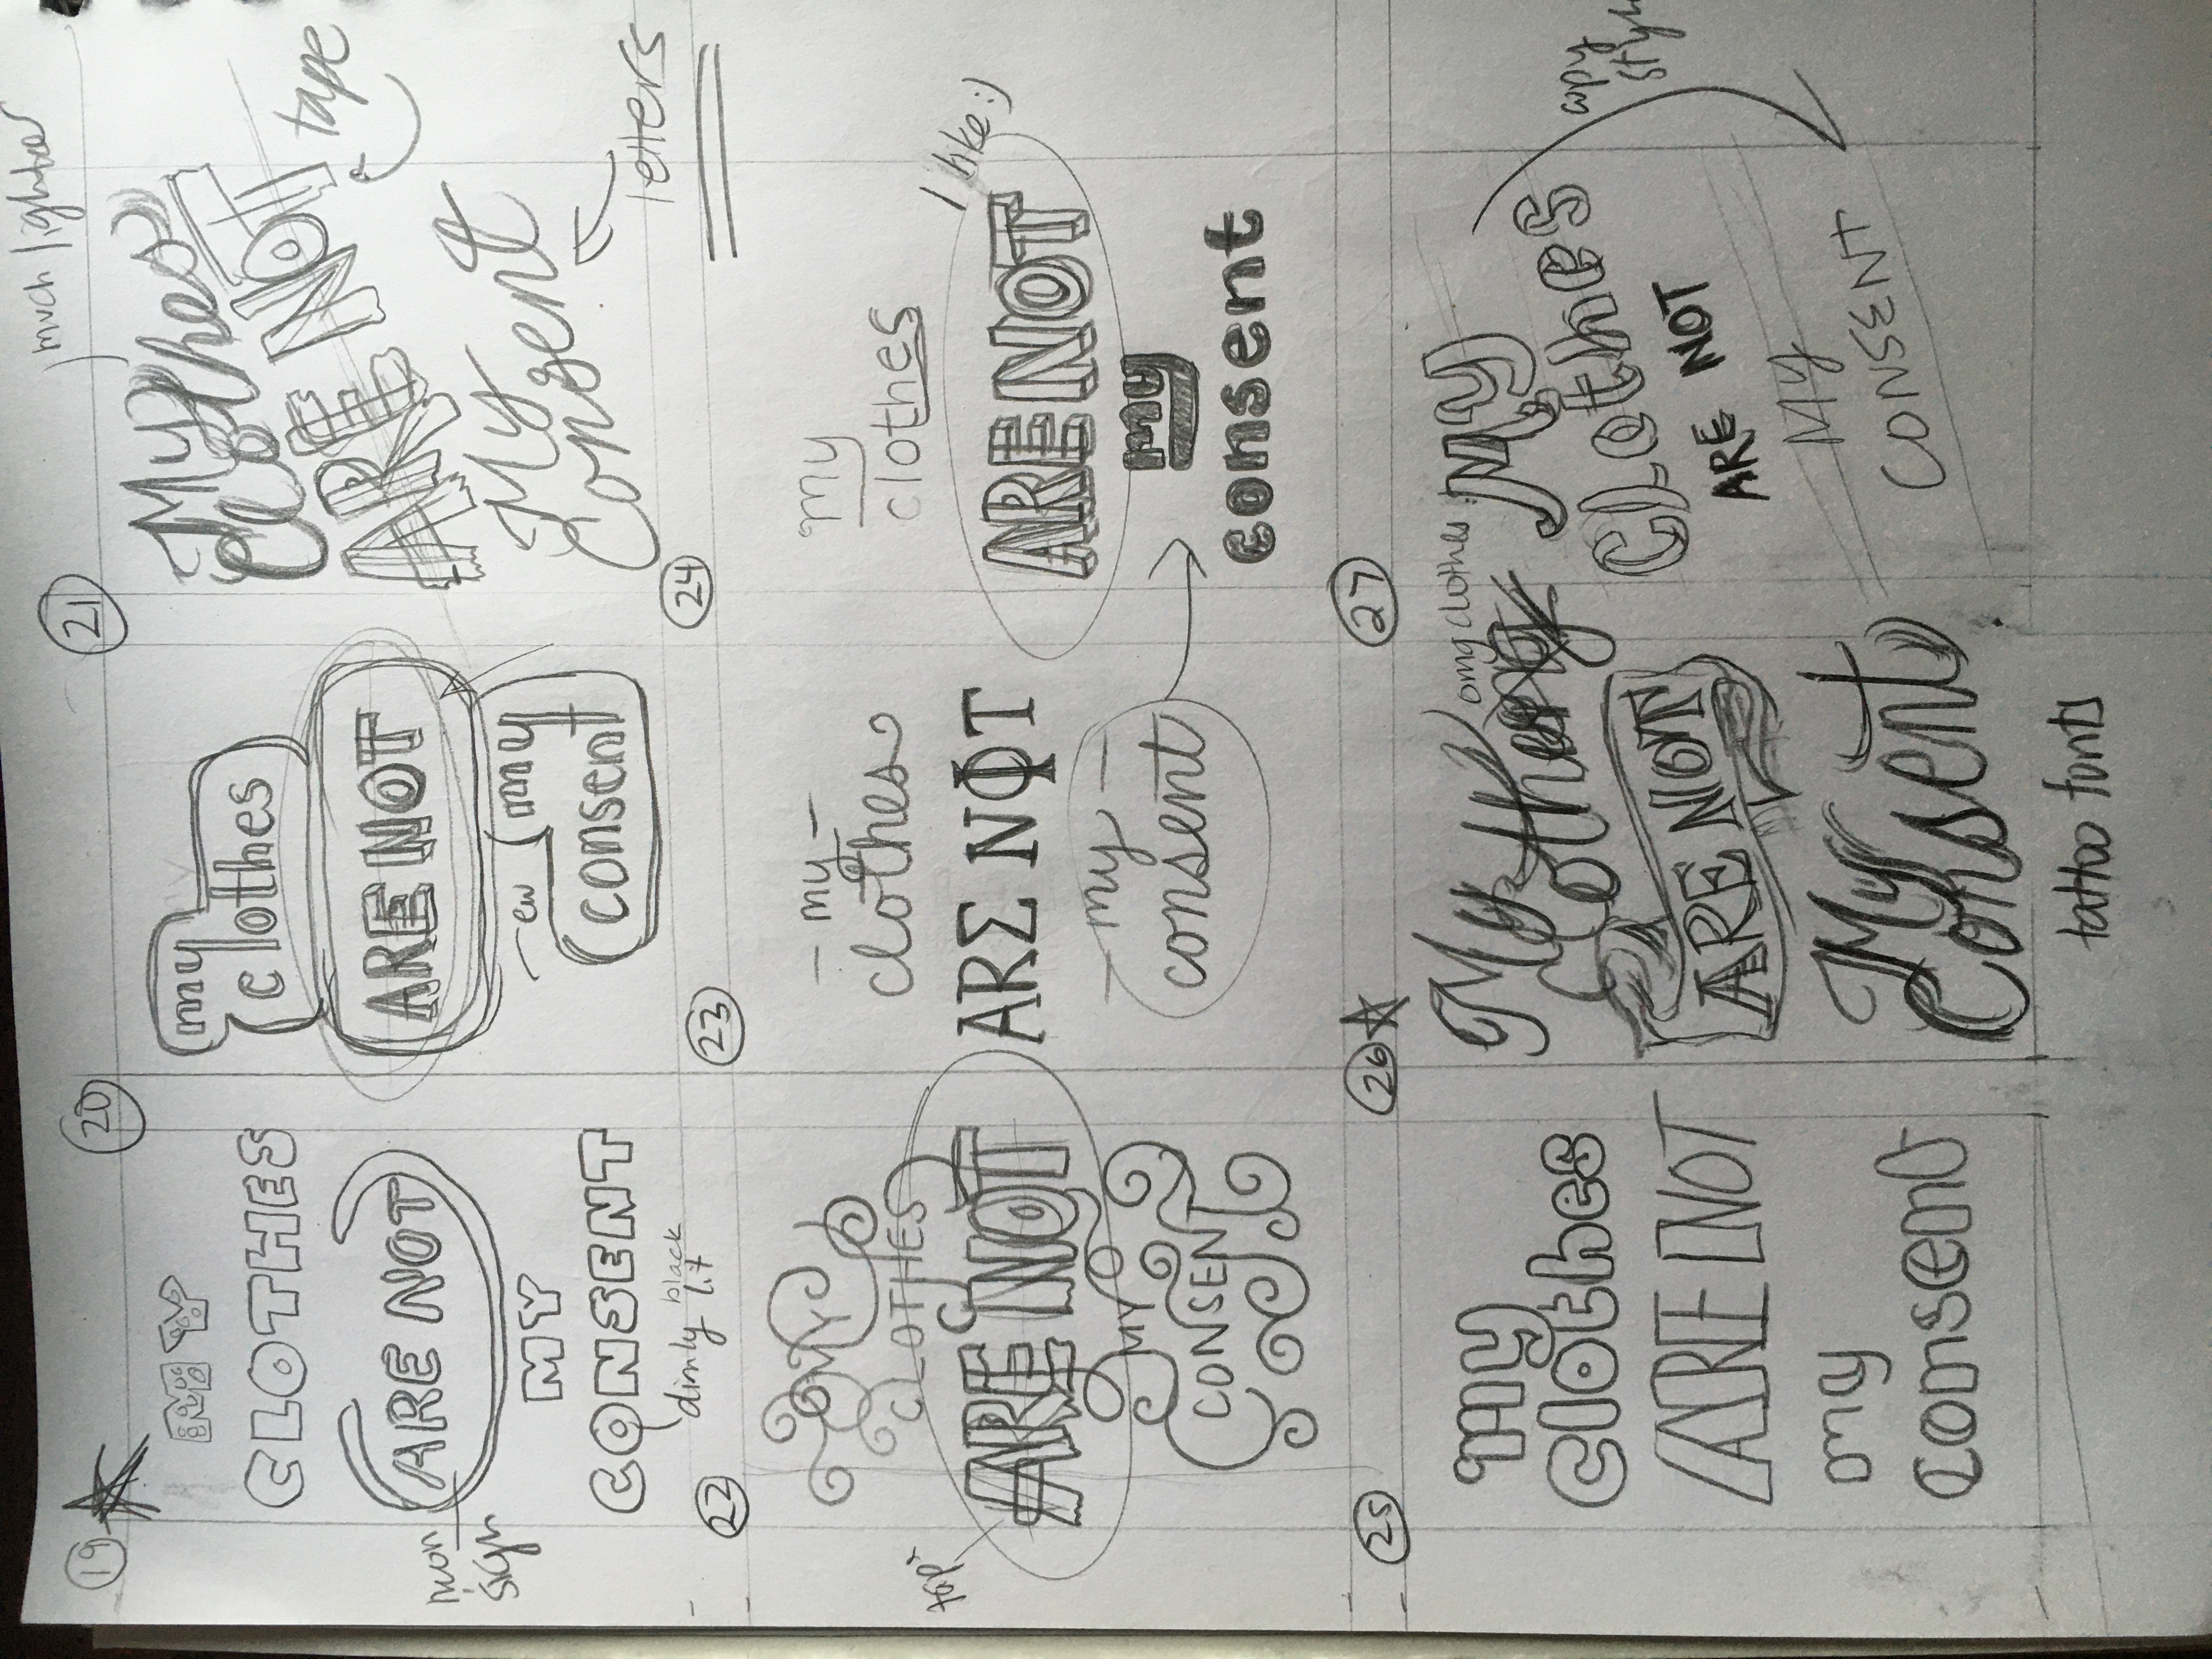 19
MY
CLOTHES
ARE NOT
MY
CONSENT
neon
sign
dimly
black
20
my
clothes
ARE NOT
my
consent
ew
21
much lighter
My
Clothes
ARE NOT
My
Consent
tape
letters
22
MY
CLOTHES
ARE NOT
MY
CONSENT
tape
23
my
clothes
ARΣ NΦT
my
consent
24
my
clothes
ARE NOT
my
consent
I like :)
25
my
clothes
ARE NOT
my
consent
26
My
Clothes
ARE NOT
My
Consent
tattoo fonts
27
omg clothes
My
Clothes
ARE NOT
MY
CONSENT
copy